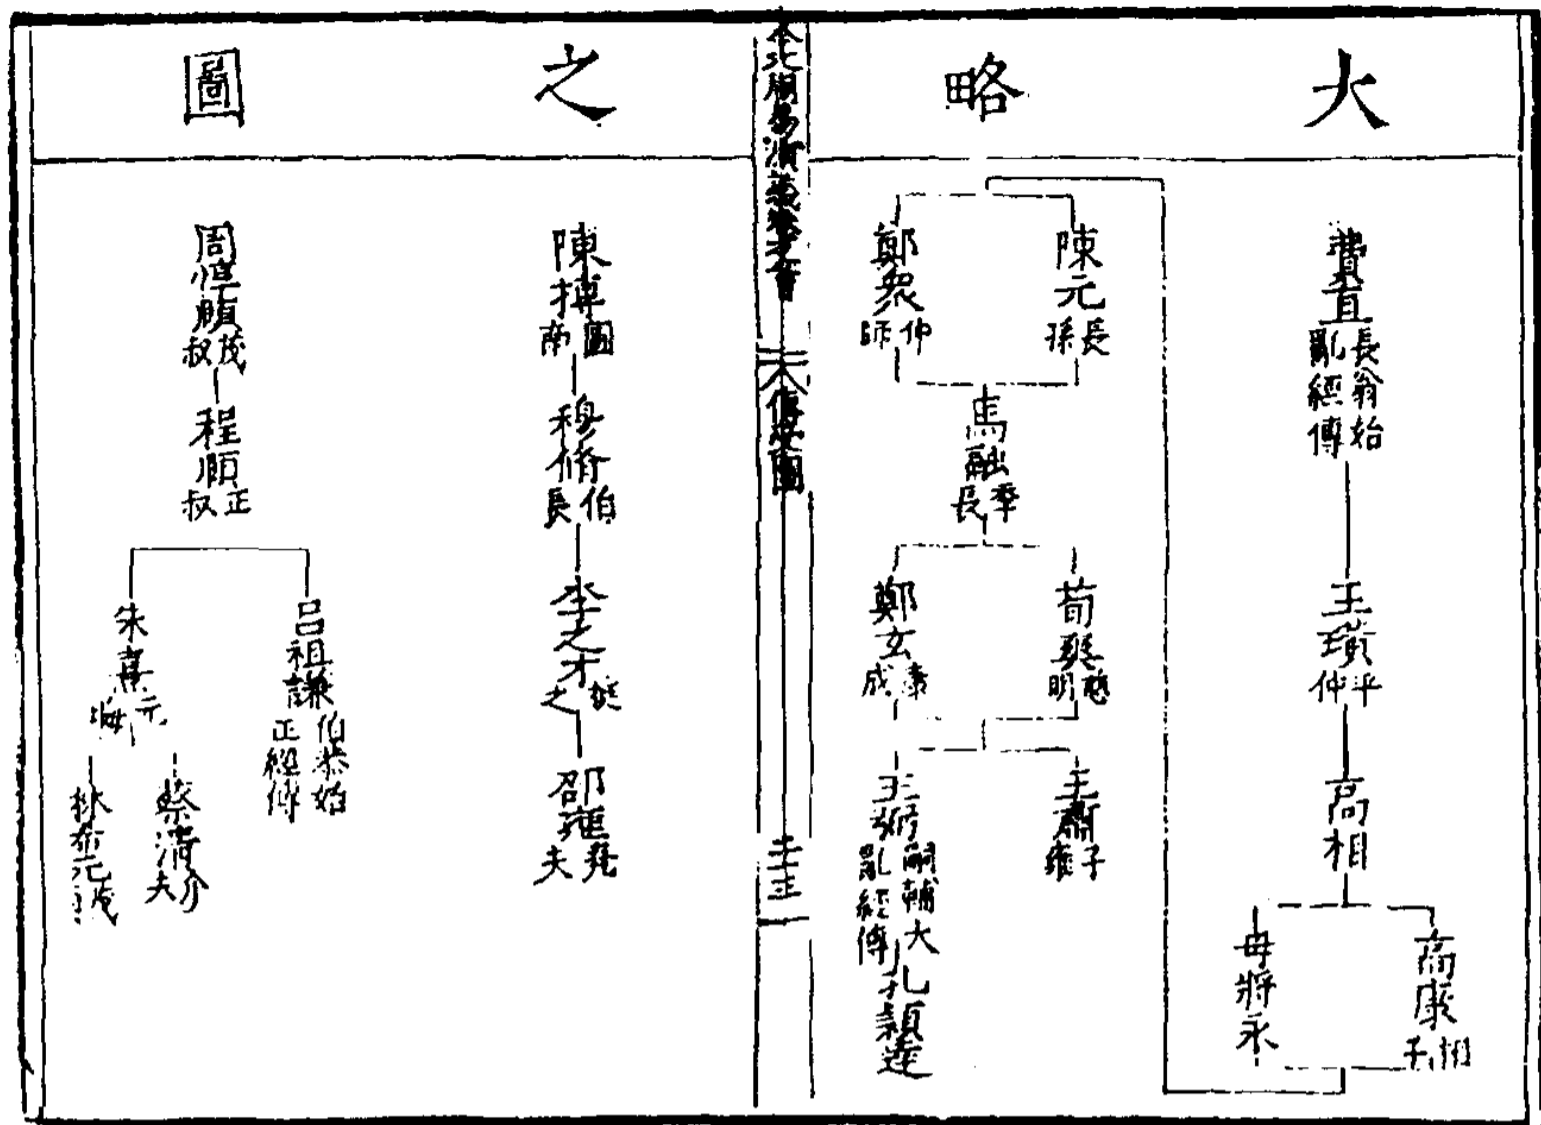 大略之圖
費直 長翁始亂經傳
王璜 平仲
高相
高康 相子
毋將永
陳元 長孫
鄭眾 仲師
馬融 季長
荀爽 慈明
鄭玄 康成
王肅 子雍
王弼 輔嗣大亂經傳
孔穎達
傳授圖
陳摶 圖南
穆脩 伯長
李之才 挺之
邵雍 堯夫
周惇頤 茂叔
程頤 正叔
呂祖謙 伯恭始正經傳
朱熹 元晦
蔡清 介夫
林希元 茂貞